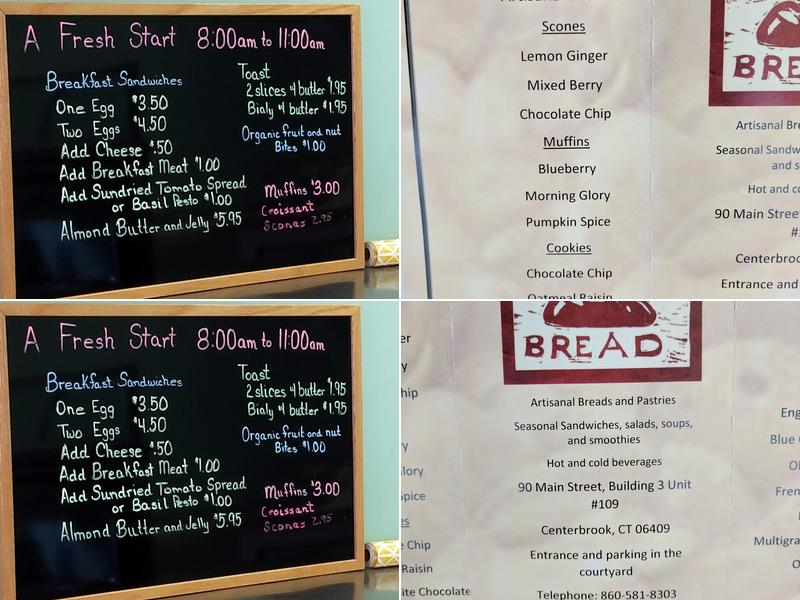 A Fresh Start 8:00am to 11:00am
Breakfast Sandwiches
One Egg $3.50
Two Eggs $4.50
Add Cheese $.50
Add Breakfast Meat $1.00
Add Sundried Tomato Spread
or Basil Pesto $1.00
Almond Butter and Jelly $5.95
Toast
2 slices 4 butter $1.95
Bialy 4 butter $1.95
Organic fruit and nut
Bites $1.00
Muffins $3.00
Croissant
Scones 2.95
Scones
Lemon Ginger
Mixed Berry
Chocolate Chip
Muffins
Blueberry
Morning Glory
Pumpkin Spice
Cookies
Chocolate Chip
Oatmeal Raisin
BRE
Artisanal Bre
Seasonal Sandw
and s
Hot and co
90 Main Street
Centerbroo
Entrance and
A Fresh Start 8:00am to 11:00am
Breakfast Sandwiches
One Egg $3.50
Two Eggs $4.50
Add Cheese $.50
Add Breakfast Meat $1.00
Add Sundried Tomato Spread
or Basil Pesto $1.00
Almond Butter and Jelly $5.95
Toast
2 slices 4 butter $1.95
Bialy 4 butter $1.95
Organic fruit and nut
Bites $1.00
Muffins $3.00
Croissant
Scones 2.95
BREAD
Artisanal Breads and Pastries
Seasonal Sandwiches, salads, soups,
and smoothies
Hot and cold beverages
90 Main Street, Building 3 Unit
#109
Centerbrook, CT 06409
Entrance and parking in the
courtyard
Telephone: 860-581-8303
er
hip
ry
lory
Spice
es
e Chip
Raisin
ite Chocolate
Eng
Blue
Ol
Fren
Multigra